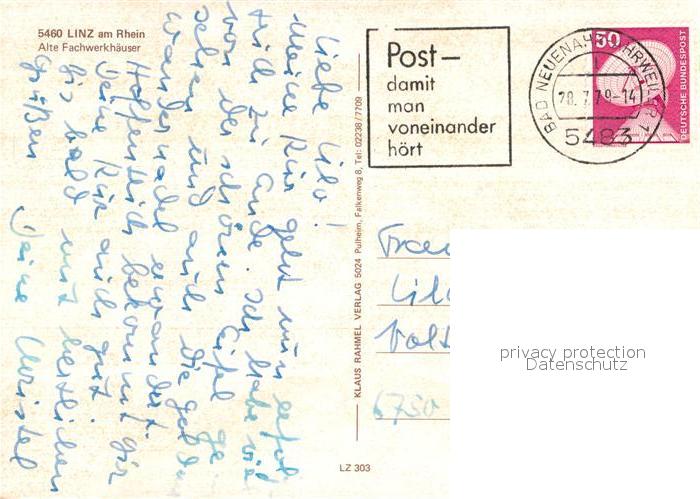 5460 LINZ am Rhein
Alte Fachwerkhäuser
Liebe Lilo!
Meine Kur geht nun erfolg
reich zu Ende. Ich habe viel
von der schönen Eifel ge
sehen und auch die goldene
Wandernadel erwandert.
Hoffentlich bekommt Dir
Deine Kur auch gut.
Bis bald mit herzlichen
Grüßen
Deine Christel
KLAUS RAHMEL VERLAG 5024 Pulheim, Falkenweg 8, Tel: 02238/7709
LZ 303
Post—
damit
man
voneinander
hört
BAD NEUENAHR-AHRWEILER 1
28.7.79-14
5483
50
DEUTSCHE BUNDESPOST
Frau
Lil
6750
privacy protection
Datenschutz